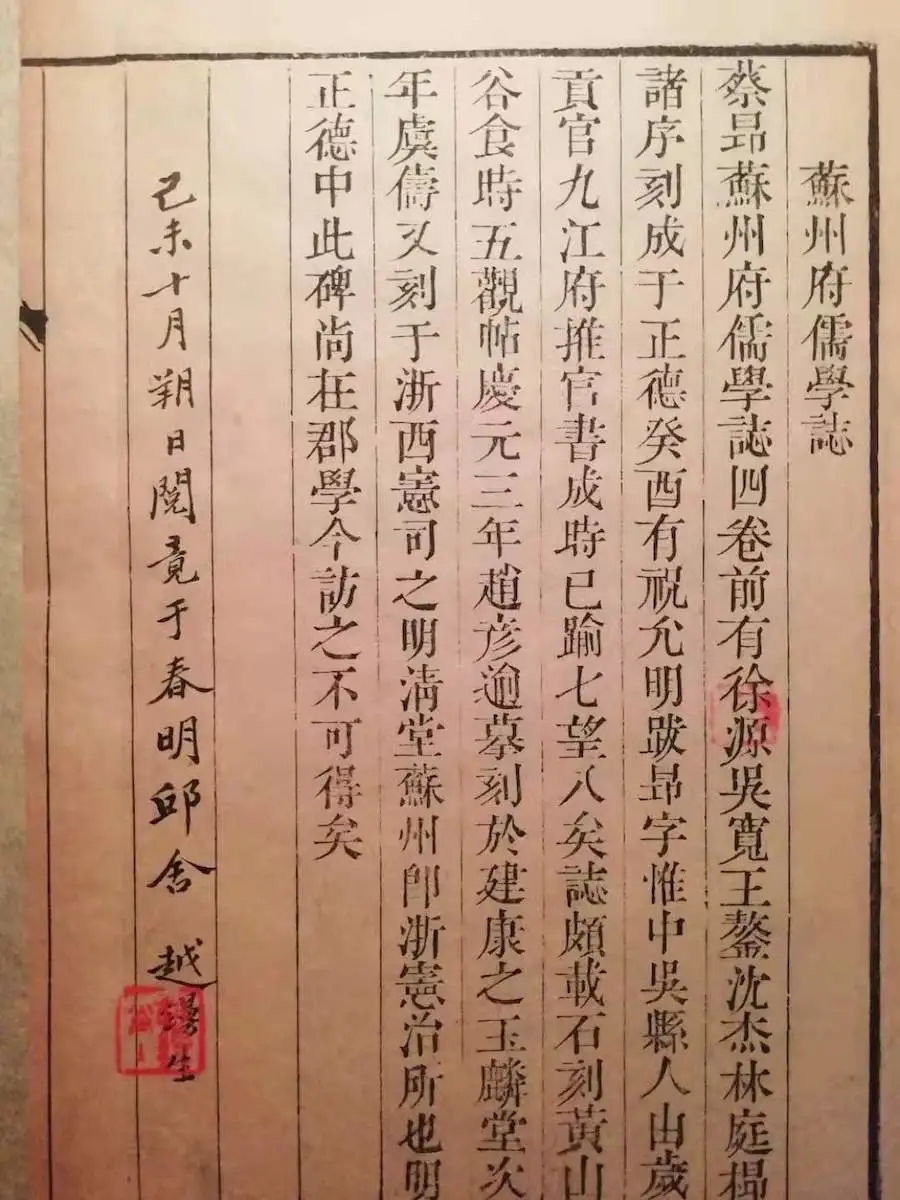 蘇州府儒學誌
蔡昂蘇州府儒學誌四卷前有徐源吳寬王鏊沈杰林庭㭿
諸序刻成于正德癸酉有祝允明跋昂字惟中吳縣人由歲
貢官九江府推官書成時已踰七望八矣誌頗載石刻黃山
谷食時五觀帖慶元三年趙彥逾摹刻於建康之玉麟堂次
年虞儔又刻于浙西憲司之明清堂蘇州卽浙憲治所也明
正德中此碑尚在郡學今訪之不可得矣
己未十月朔日閱竟于春明邸舍 越縵生